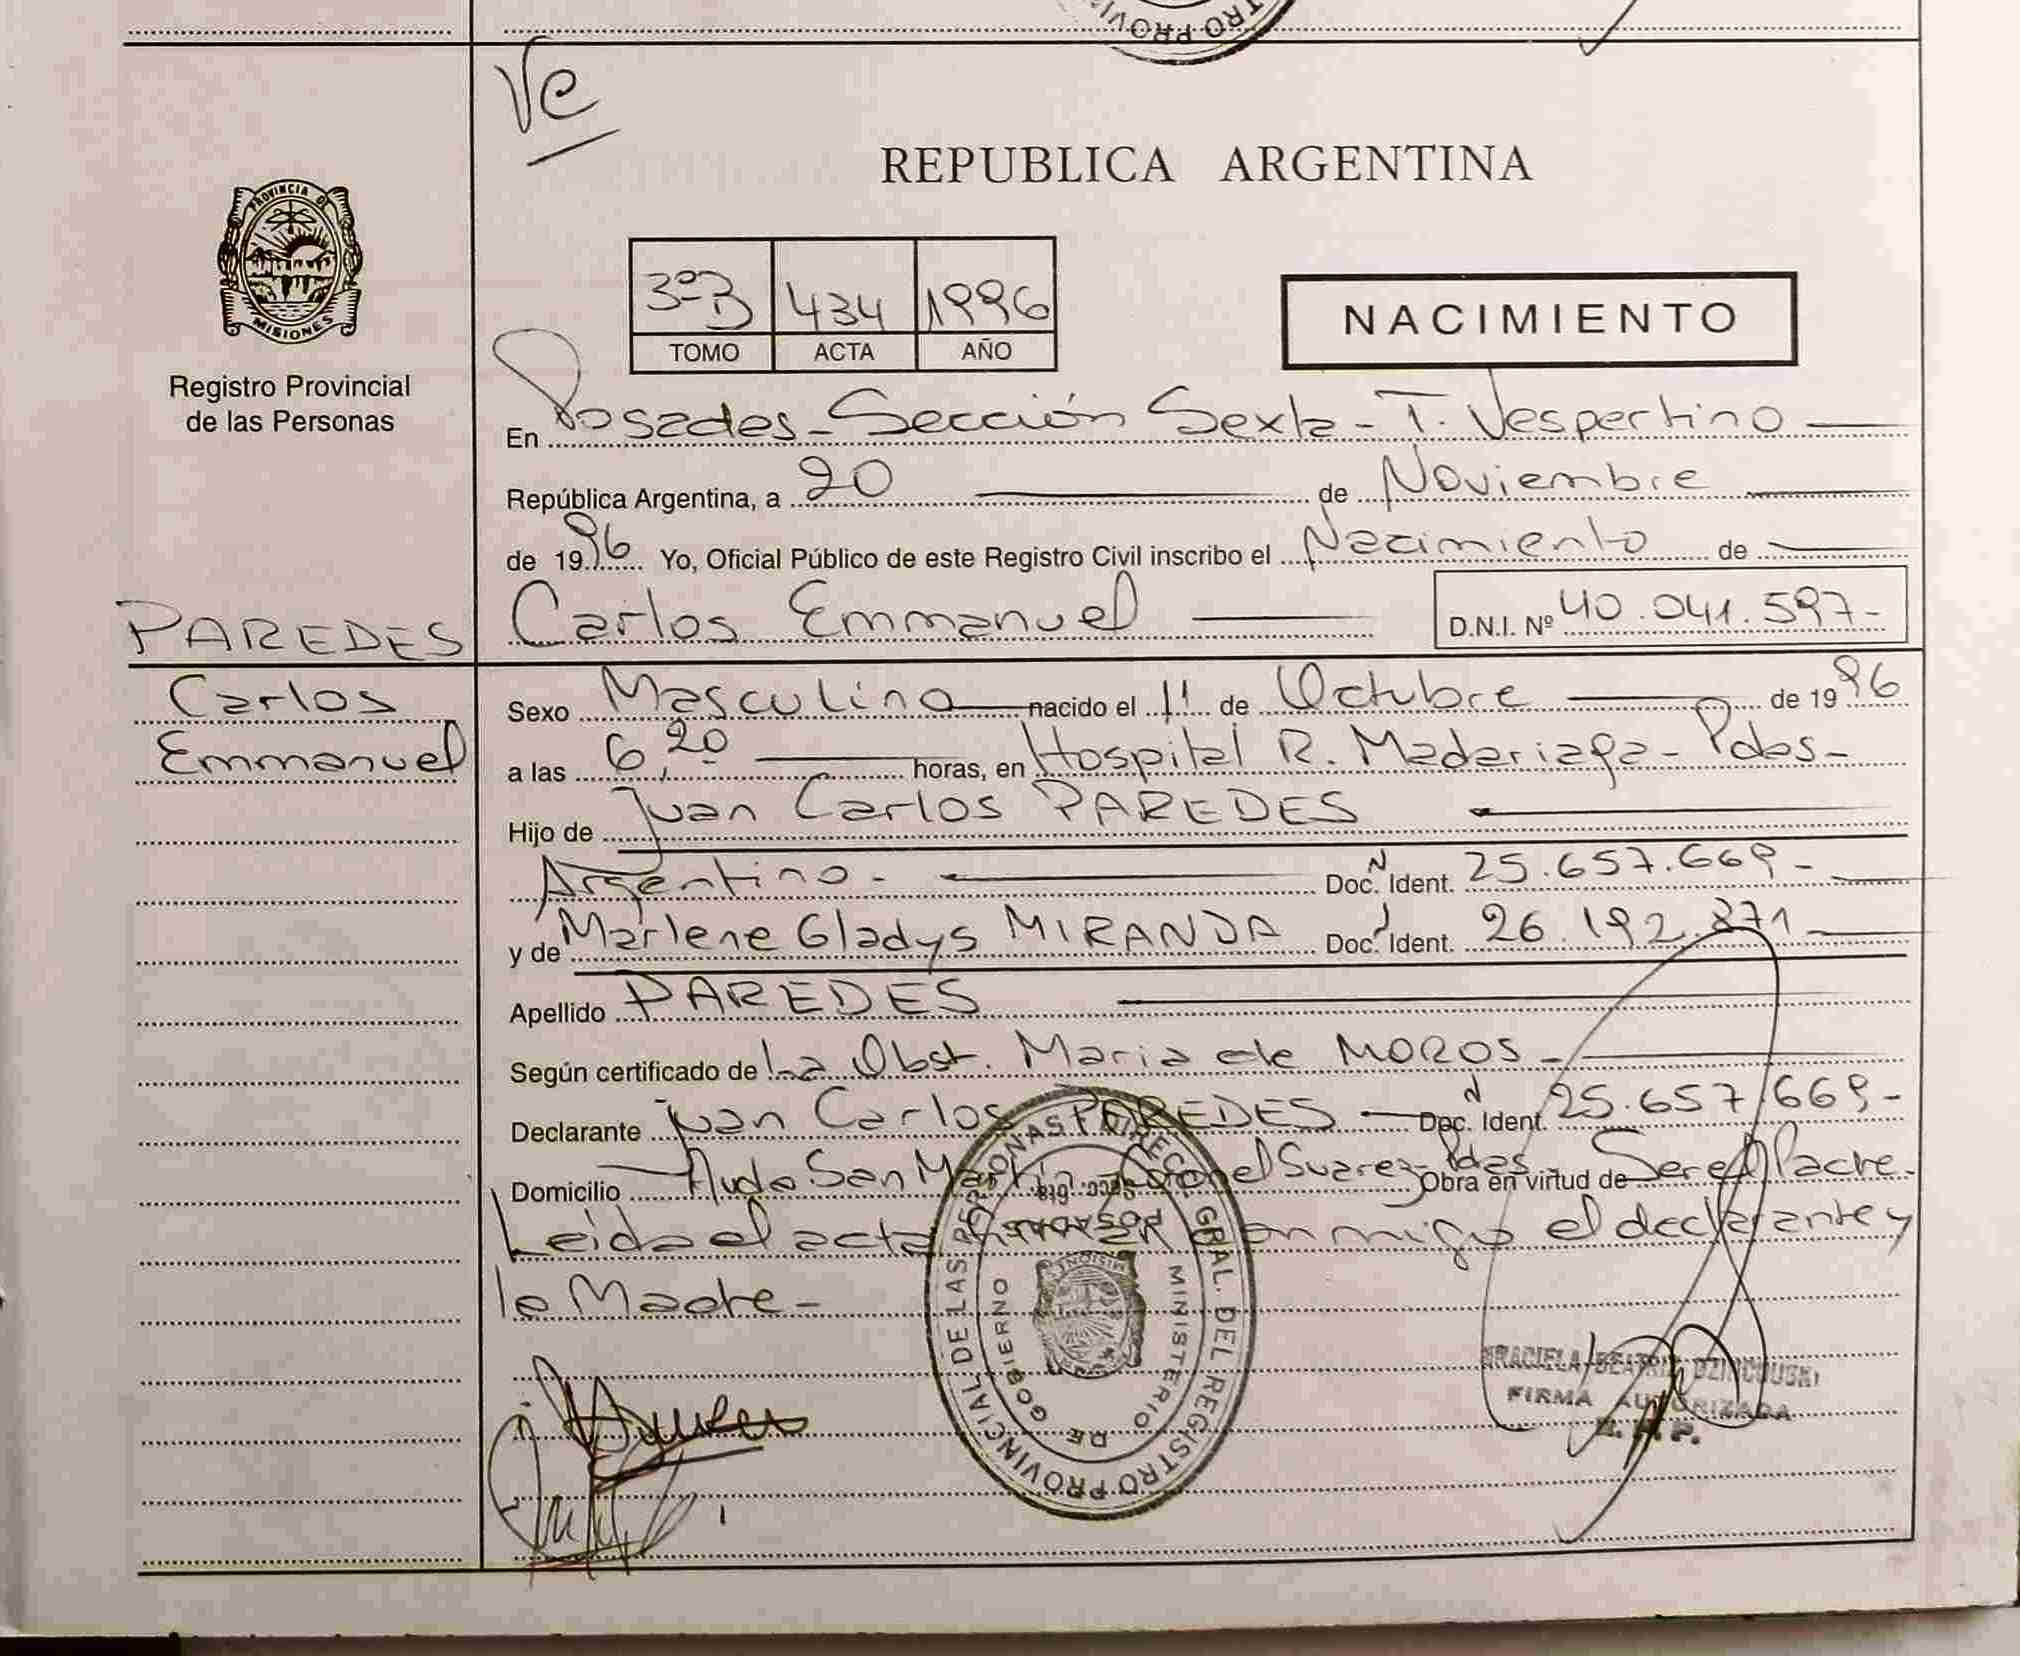 REGISTRO PROVIN
Ve
REPUBLICA ARGENTINA
PROVINCIA DE
MISIONES
Registro Provincial
de las Personas
3ºB 434 1996
TOMO ACTA AÑO
NACIMIENTO
En Posadas - Sección Sexta - T. Vespertino
República Argentina, a 20 de Noviembre
de 1996 Yo, Oficial Público de este Registro Civil inscribo el Nacimiento de
PAREDES Carlos Emmanuel D.N.I. Nº 40.041.597-
Carlos
Emmanuel
Sexo Masculino nacido el 11 de Octubre de 1996
a las 6,20 horas, en Hospital R. Madariaga - Pdas -
Hijo de Juan Carlos PAREDES
Argentino - Doc. Ident. 25.657.669-
y de Marlene Gladys MIRANDA Doc. Ident. 26.192.871-
Apellido PAREDES
Según certificado de La Obst. Maria de MOROS -
Declarante Juan Carlos PAREDES Doc. Ident. 25.657.669-
Domicilio Avda San Martín Coronel Suarez - Pdas Obra en virtud de Ser el Padre.
Leida el acta conmigo el declarante y
la Madre -
DIREC. GRAL. DEL REGISTRO PROVINCIAL DE LAS PERSONAS
MINISTERIO DE GOBIERNO
POSADAS
MISIONES
GRACIELA BEATRIZ
FIRMA AUTORIZADA